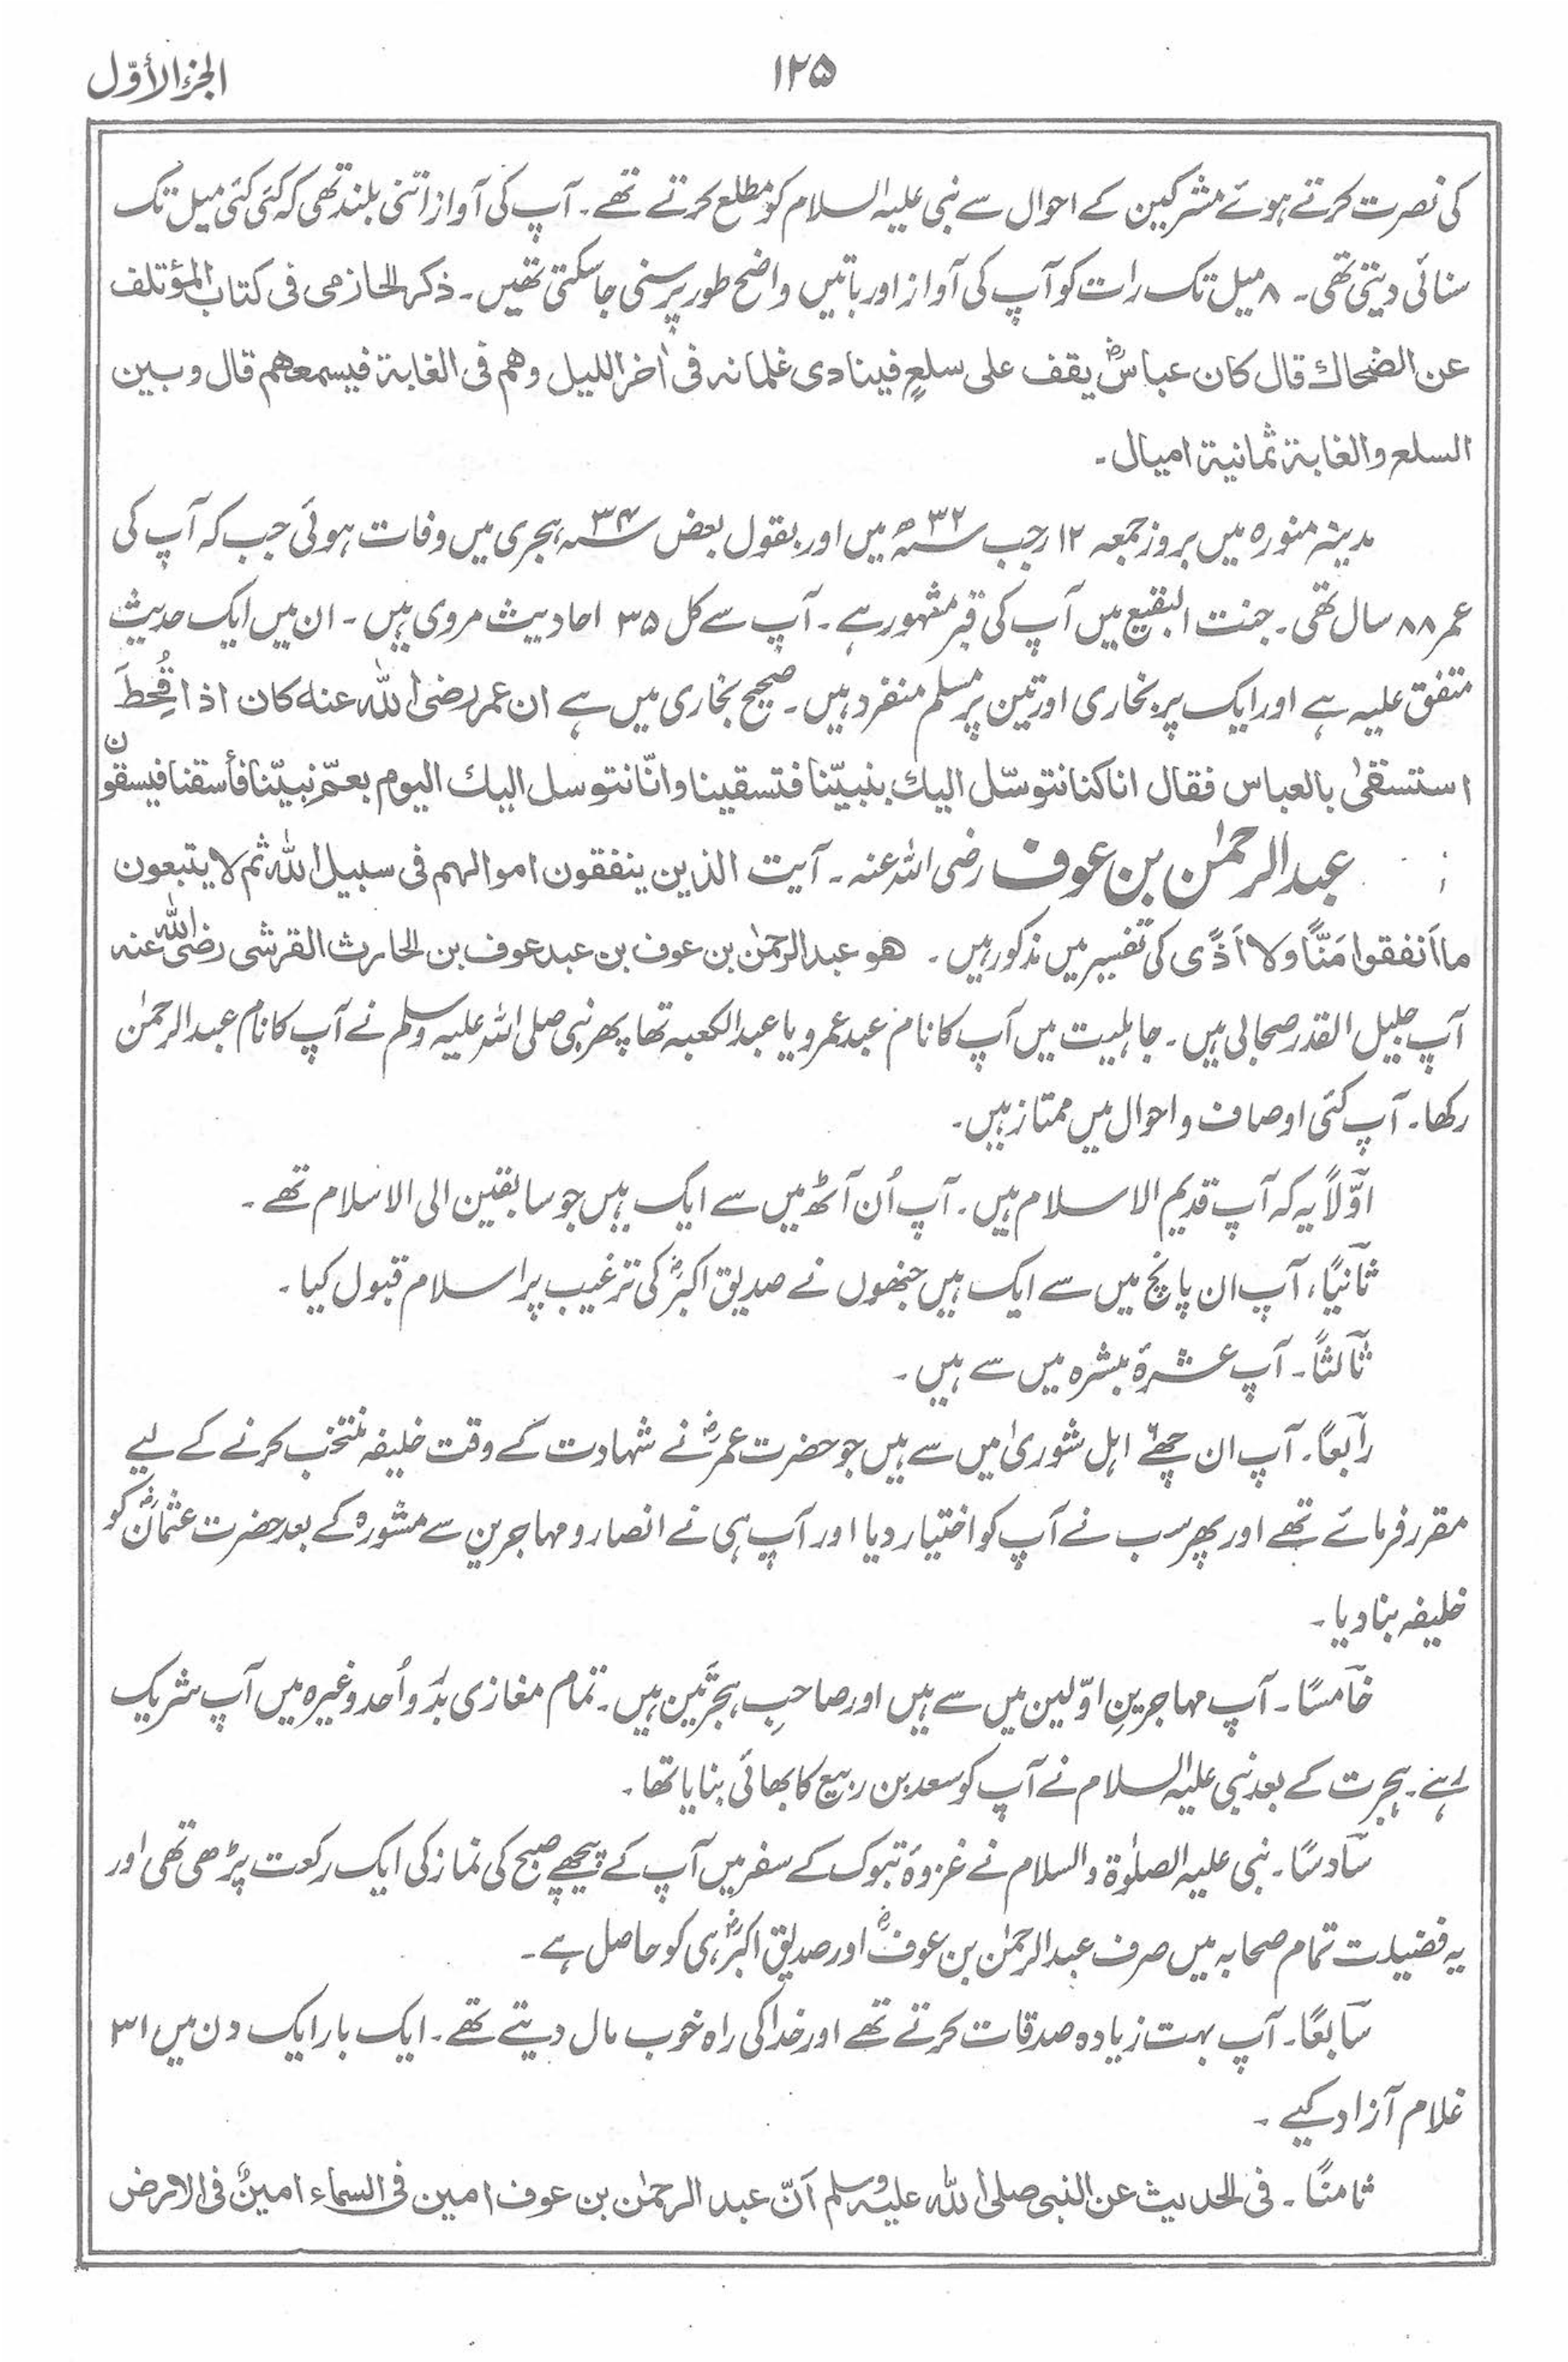 الجزء الأوّل
۱۲۵
کی نصرت کرتے ہوئے مشرکین کے احوال سے نبی علیہ السلام کو مطلع کرتے تھے۔ آپ کی آواز اتنی بلند تھی کہ کئی کئی میل تک
سنائی دیتی تھی۔ ۸ میل تک رات کو آپ کی آواز اور باتیں واضح طور پر سنی جا سکتی تھیں۔ ذکر الحازمی فی کتاب المؤتلف
عن الضحاك قال كان عباسؓ يقف على سلعٍ فينادى غلمانه فى اٰخر الليل وهم فى الغابة فيسمعهم قال وبين
السلع والغابة ثمانية اميال۔
مدینہ منورہ میں بروز جمعہ ۱۲ رجب ۳۲ھ میں اور بقول بعض ۳۴ ہجری میں وفات ہوئی جب کہ آپ کی
عمر ۸۸ سال تھی۔ جنت البقیع میں آپ کی قبر مشہور ہے۔ آپ سے کل ۳۵ احادیث مروی ہیں۔ ان میں ایک حدیث
متفق علیہ ہے اور ایک پر بخاری اور تین پر مسلم منفرد ہیں۔ صحیح بخاری میں ہے ان عمر رضى الله عنه كان اذا قُحِطَ
استسقىٰ بالعباس فقال انا كنا نتوسّل اليك بنبيّنا فتسقينا وانّا نتوسل اليك اليوم بعمّ نبيّنا فأسقنا فيسقون
عبد الرحمٰن بن عوف رضی اللہ عنہ۔ آیت الذين ينفقون اموالهم فى سبيل الله ثم لا يتبعون
ما اَنفقوا مَنًّا ولا اَذًى کی تفسیر میں مذکور ہیں۔ هو عبد الرحمٰن بن عوف بن عبد عوف بن الحارث القرشى رضى الله عنه
آپ جلیل القدر صحابی ہیں۔ جاہلیت میں آپ کا نام عبد عمرو یا عبد الکعبہ تھا پھر نبی صلی اللہ علیہ وسلم نے آپ کا نام عبد الرحمٰن
رکھا۔ آپ کئی اوصاف و احوال میں ممتاز ہیں۔
اوّلاً یہ کہ آپ قدیم الاسلام ہیں۔ آپ اُن آٹھ میں سے ایک ہیں جو سابقین الی الاسلام تھے۔
ثانیًا، آپ ان پانچ میں سے ایک ہیں جنھوں نے صدیق اکبرؓ کی ترغیب پر اسلام قبول کیا۔
ثالثًا۔ آپ عشرۂ مبشرہ میں سے ہیں۔
رابعًا۔ آپ ان چھے اہل شوریٰ میں سے ہیں جو حضرت عمرؓ نے شہادت کے وقت خلیفہ منتخب کرنے کے لیے
مقرر فرمائے تھے اور پھر سب نے آپ کو اختیار دیا اور آپ ہی نے انصار و مہاجرین سے مشورہ کے بعد حضرت عثمانؓ کو
خلیفہ بنا دیا۔
خامسًا۔ آپ مہاجرینِ اوّلین میں سے ہیں اور صاحبِ ہجرتین ہیں۔ تمام مغازی بدر و اُحد وغیرہ میں آپ شریک
رہے۔ ہجرت کے بعد نبی علیہ السلام نے آپ کو سعد بن ربیع کا بھائی بنایا تھا۔
سادسًا۔ نبی علیہ الصلوٰۃ والسلام نے غزوۂ تبوک کے سفر میں آپ کے پیچھے صبح کی نماز کی ایک رکعت پڑھی تھی اور
یہ فضیلت تمام صحابہ میں صرف عبد الرحمٰن بن عوفؓ اور صدیق اکبرؓ ہی کو حاصل ہے۔
سابعًا۔ آپ بہت زیادہ صدقات کرتے تھے اور خدا کی راہ خوب مال دیتے تھے۔ ایک بار ایک دن میں ۳۱
غلام آزاد کیے۔
ثامنًا۔ فى الحديث عن النبى صلى الله عليه وسلم اَنّ عبد الرحمٰن بن عوف امين فى السماء امينٌ فى الارض